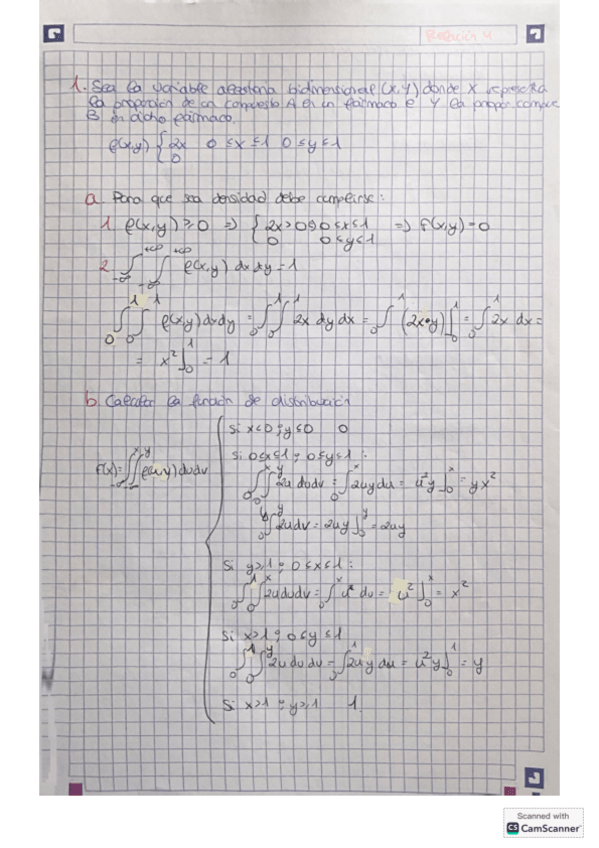 Relación 4
1. Sea la variable aleatoria bidimensional (X,Y) donde X representa
la proporción de un compuesto A en un fármaco e Y la propor. compue
B en dicho fármaco.
f(x,y) { 2x 0≤x≤1 0≤y≤1
0
a. Para que sea densidad debe cumplirse:
1. f(x,y) ≥ 0 ⇒ { 2x>0 0≤x≤1 ⇒ f(x,y)=0
0 0≤y≤1
2. ∫_{-∞}^{+∞} ∫_{-∞}^{+∞} f(x,y) dx dy = 1
∫_0^1 ∫_0^1 f(x,y) dx dy = ∫_0^1 ∫_0^1 2x dy dx = ∫_0^1 (2x·y)]_0^1 = ∫_0^1 2x dx =
= x²]_0^1 = 1
b. Calcular la función de distribución
Si x<0 ; y≤0 0
Si 0≤x≤1 ; 0≤y≤1 :
F(x)= ∫∫ f(u,v) du dv
∫_0^x ∫_0^y 2u du dv = ∫_0^x 2uy du = u²y]_0^x = yx²
∫_0^y 2u dv = 2uy]_0^y = 2uy
Si y>1 ; 0≤x≤1 :
∫_0^1 ∫_0^x 2u du dv = ∫_0^x u² du = u²]_0^x = x²
Si x>1 ; 0≤y≤1
∫_0^1 ∫_0^y 2u du dv = ∫_0^1 2uy du = u²y]_0^1 = y
Si x>1 ; y>1 1.
Scanned with
CS CamScanner